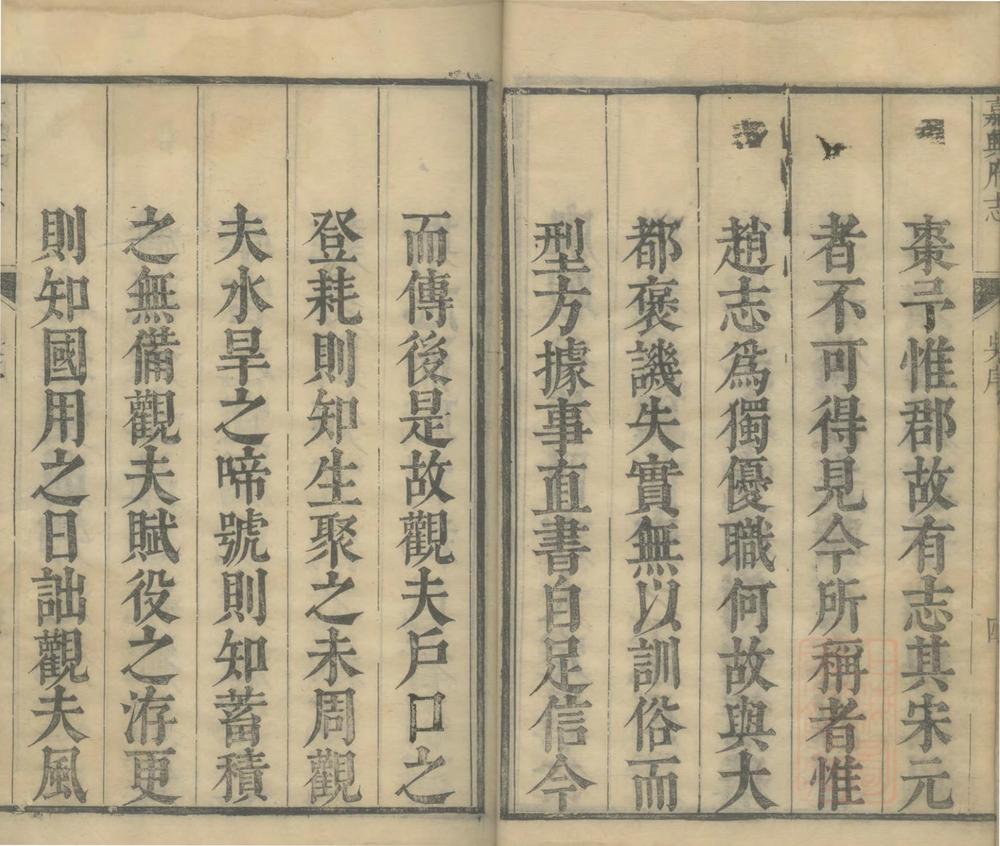 嘉興府志
棗㢧惟郡故有志其宋元
者不可得見今所稱者惟
趙志爲獨優職何故與大
都褒譏失實無以訓俗而
型方據事直書自足信今
而傳後是故觀夫戶口之
登耗則知生聚之未周觀
夫水旱之啼號則知蓄積
之無備觀夫賦役之洊更
則知國用之日詘觀夫風